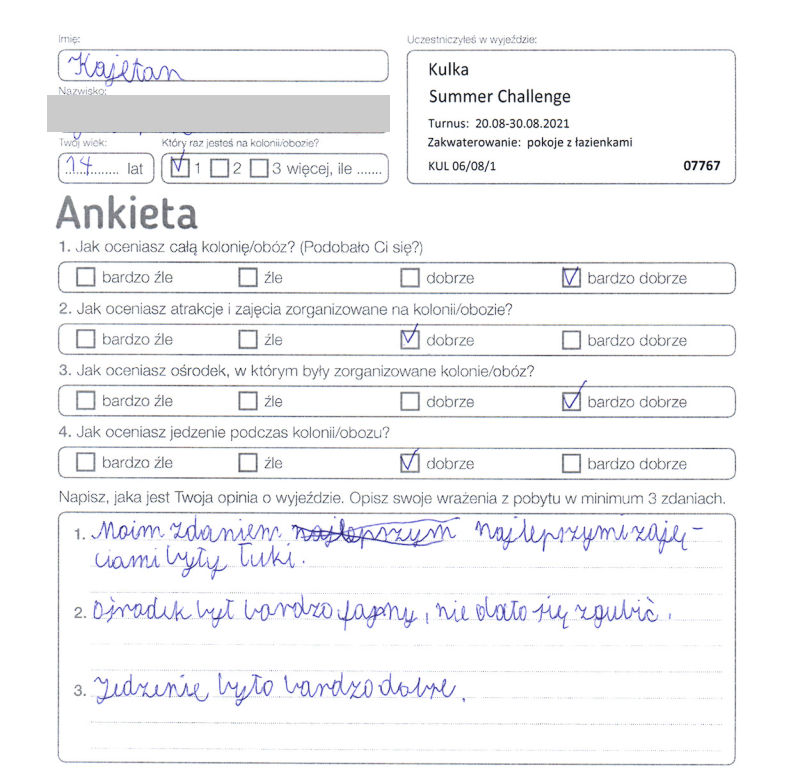 Imię:
Kajetan
Uczestniczyłeś w wyjeździe:
Kulka
Summer Challenge
Turnus: 20.08-30.08.2021
Zakwaterowanie: pokoje z łazienkami
KUL 06/08/1 07767
Nazwisko:
Twój wiek: Który raz jesteś na kolonii/obozie?
14 lat 1 2 3 więcej, ile .......
Ankieta
1. Jak oceniasz całą kolonię/obóz? (Podobało Ci się?)
bardzo źle źle dobrze bardzo dobrze
2. Jak oceniasz atrakcje i zajęcia zorganizowane na kolonii/obozie?
bardzo źle źle dobrze bardzo dobrze
3. Jak oceniasz ośrodek, w którym były zorganizowane kolonie/obóz?
bardzo źle źle dobrze bardzo dobrze
4. Jak oceniasz jedzenie podczas kolonii/obozu?
bardzo źle źle dobrze bardzo dobrze
Napisz, jaka jest Twoja opinia o wyjeździe. Opisz swoje wrażenia z pobytu w minimum 3 zdaniach.
1. Moim zdaniem najlepszym najlepszymi zaję-
ciami były łuki.
2. Ośrodek był bardzo fajny, nie dało się zgubić.
3. Jedzenie było bardzo dobre.